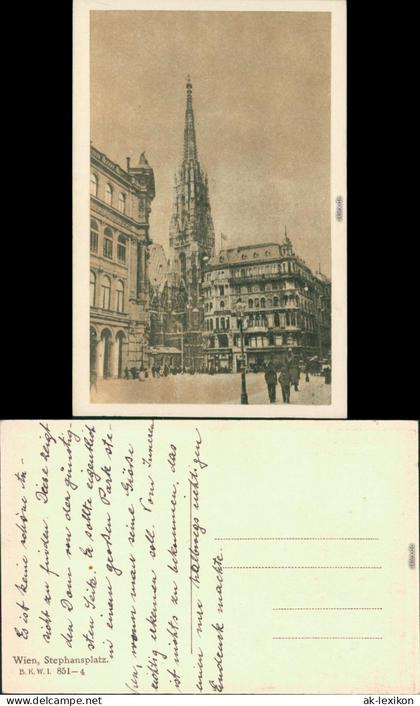 Es ist keine schöne An-
sicht zu finden. Diese zeigt
den Dom von der günstig-
sten Seite. Er sollte eigentlich
in einem großen Park ste-
hen, wenn man seine Größe
richtig erkennen soll. Vom Inneren
ist nichts zu bekommen, das
einen nur halbwegs richtigen
Eindruck machte.
Wien, Stephansplatz.
B. K. W. I. 851—4
© ak-lexikon.com